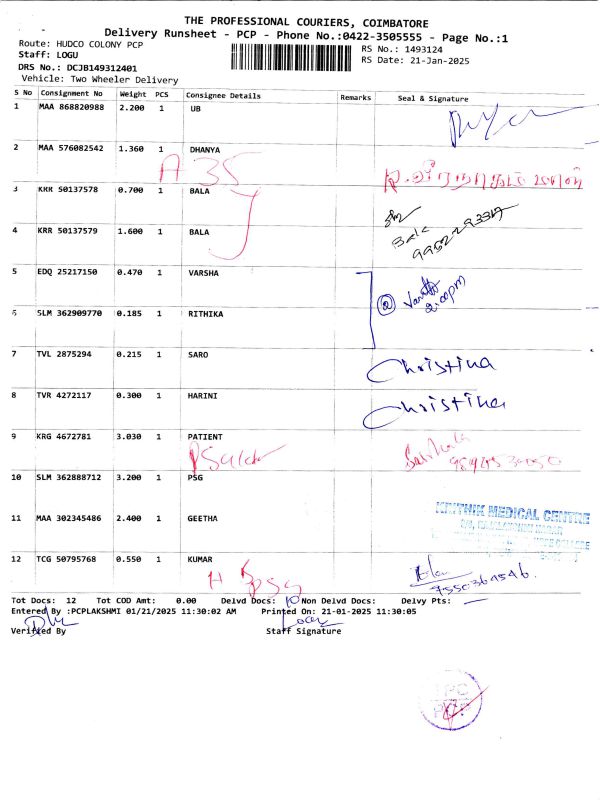 THE PROFESSIONAL COURIERS, COIMBATORE
Delivery Runsheet - PCP - Phone No.:0422-3505555 - Page No.:1
Route: HUDCO COLONY PCP RS No.: 1493124
Staff: LOGU RS Date: 21-Jan-2025
DRS No.: DCJB149312401
Vehicle: Two Wheeler Delivery
S No Consignment No Weight PCS Consignee Details Remarks Seal & Signature
1 MAA 868820988 2.200 1 UB
2 MAA 576082542 1.360 1 DHANYA
A 35
3 KRR 50137578 0.700 1 BALA
Bala
4 KRR 50137579 1.600 1 BALA
5 EDQ 25217150 0.470 1 VARSHA
2.00pm
6 SLM 362909770 0.185 1 RITHIKA
7 TVL 2875294 0.215 1 SARO
Christina
8 TVR 4272117 0.300 1 HARINI
Christina
9 KRG 4672781 3.030 1 PATIENT
10 SLM 362888712 3.200 1 PSG
11 MAA 302345486 2.400 1 GEETHA
KRITHIK MEDICAL CENTRE
12 TCG 50795768 0.550 1 KUMAR
7550364546.
Tot Docs: 12 Tot COD Amt: 0.00 Delvd Docs: 10 Non Delvd Docs: Delvy Pts:
Entered By :PCPLAKSHMI 01/21/2025 11:30:02 AM Printed On: 21-01-2025 11:30:05
Verified By Staff Signature